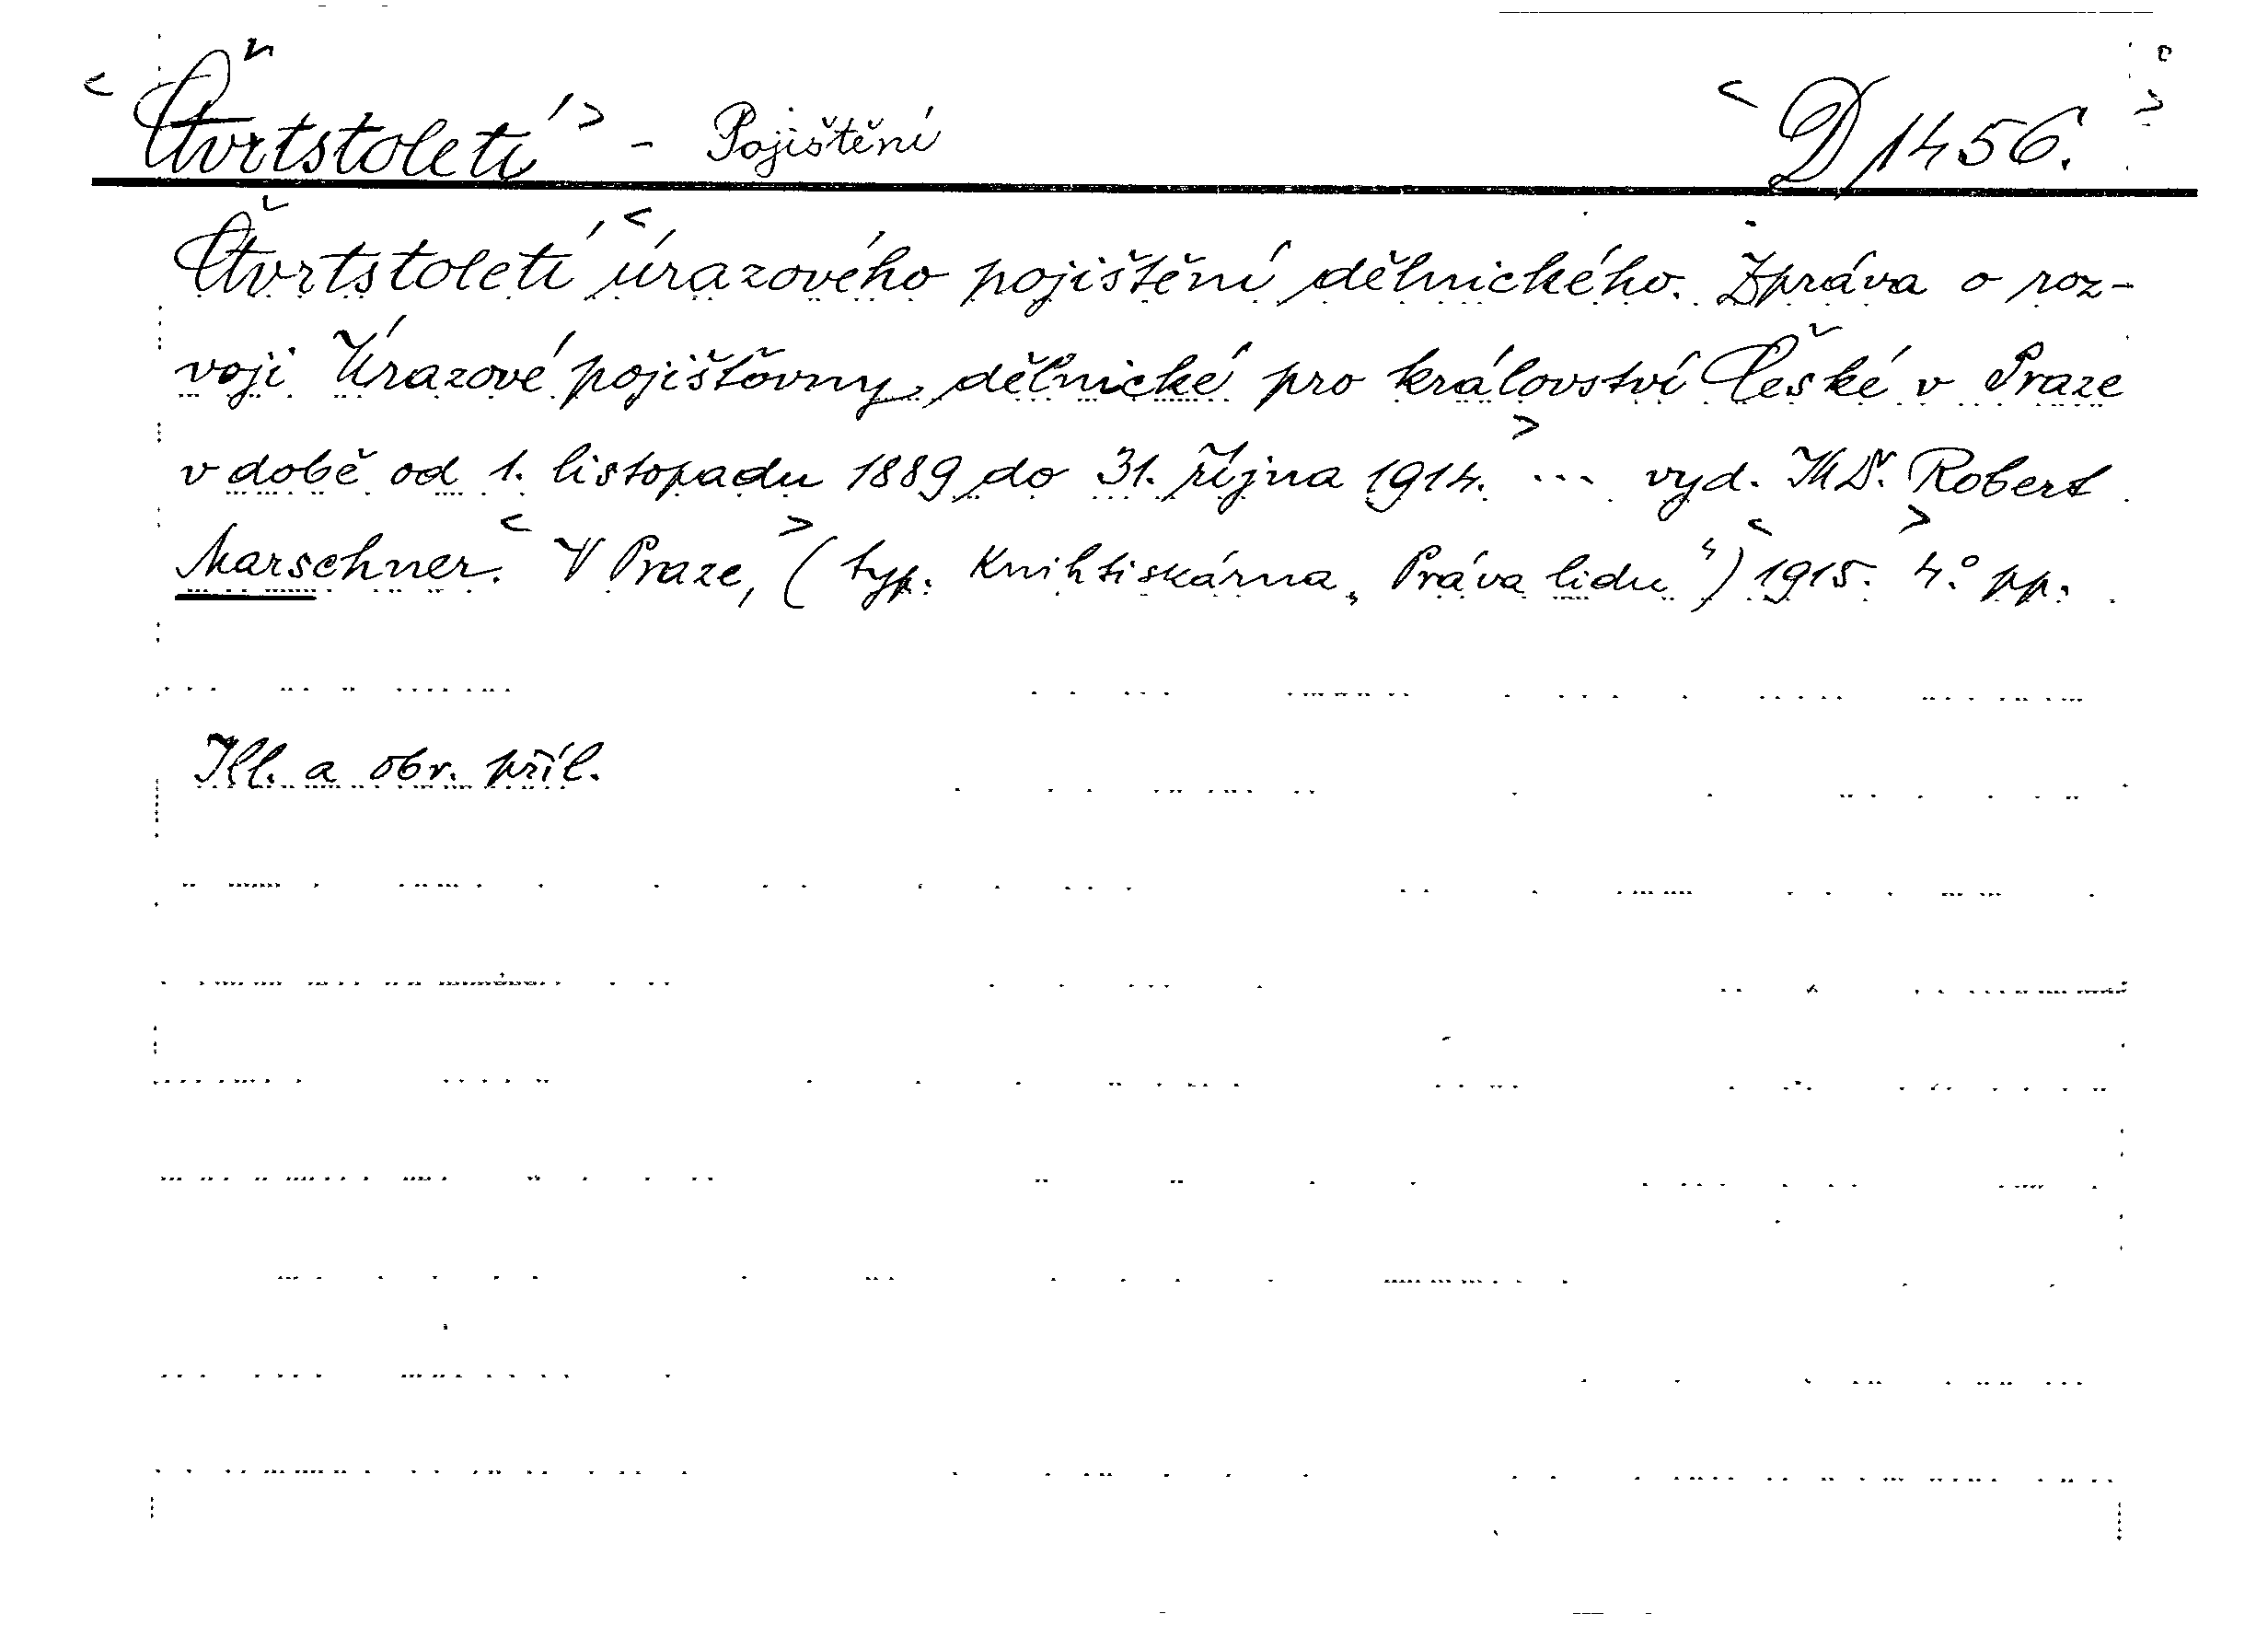 <Čtvrtstoletí> - Pojištění <D 1456.>
Čtvrtstoletí <úrazového pojištění dělnického. Zpráva o roz-
voji Úrazové pojišťovny dělnické pro království České v Praze
v době od 1. listopadu 1889 do 31. října 1914.> ... vyd. JUDr. Robert
Marschner. <V Praze,> (typ. Knihtiskárna „Práva lidu“) <1915.> 4.° pp.
Ill. a obr. příl.